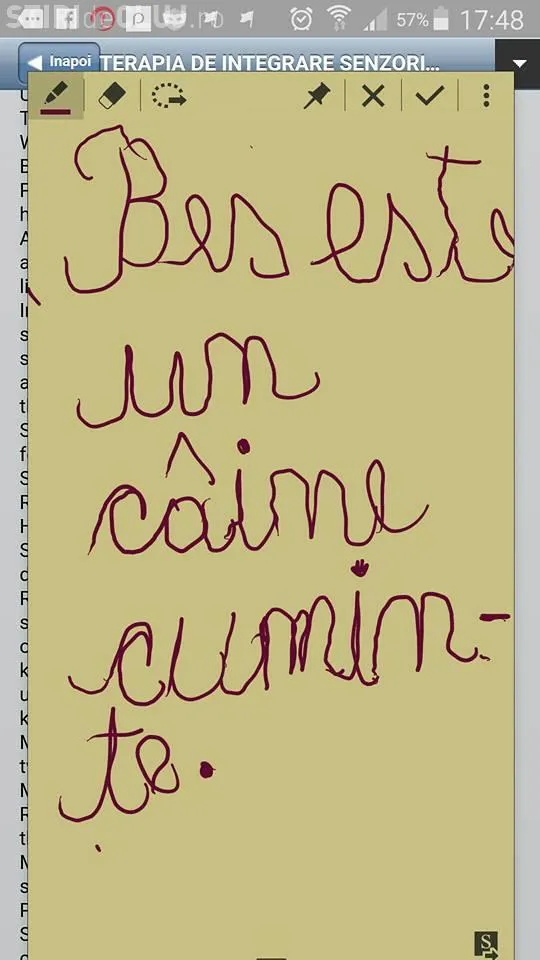 57% 17:48
Inapoi TERAPIA DE INTEGRARE SENZORI...
Bes este
un
câine
cumin-
te.